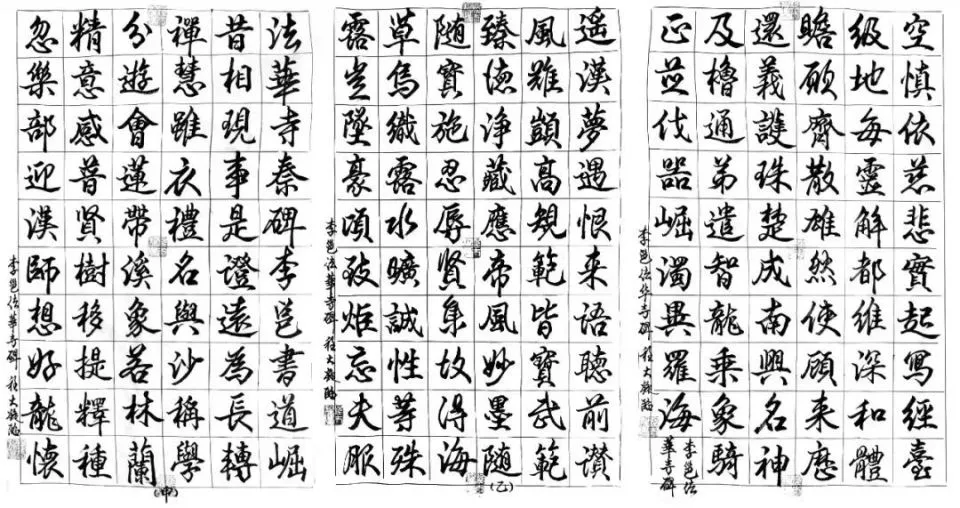 法華寺秦碑李邕書道崛
昔相現事是證遠為長轉
禪慧雖衣禮名與沙稱學
分遊會蓮帶溪象若林蘭
精意感普賢樹移提釋種
忽樂部迎漢師想好龍懷
李邕法華寺碑
遥漢夢遇恨来語聽前讃
風雖顗高規範皆寶武範
臻德淨藏應帝風妙墨随
随寶施忍辱賢身故得海
草烏織露水曠誠性等殊
露豈墜豪頃致炬忘夫服
李邕法華寺碑
(乙)
空慎依慈悲實起寫經臺
級地每靈解都維深和體
瞻顧齊散雄然使顧来歷
還義護珠楚成南興名神
及櫓通弟遣智龍乘象騎
正並伐器崛濁異羅海
李邕法华寺碑
李邕法
華寺碑